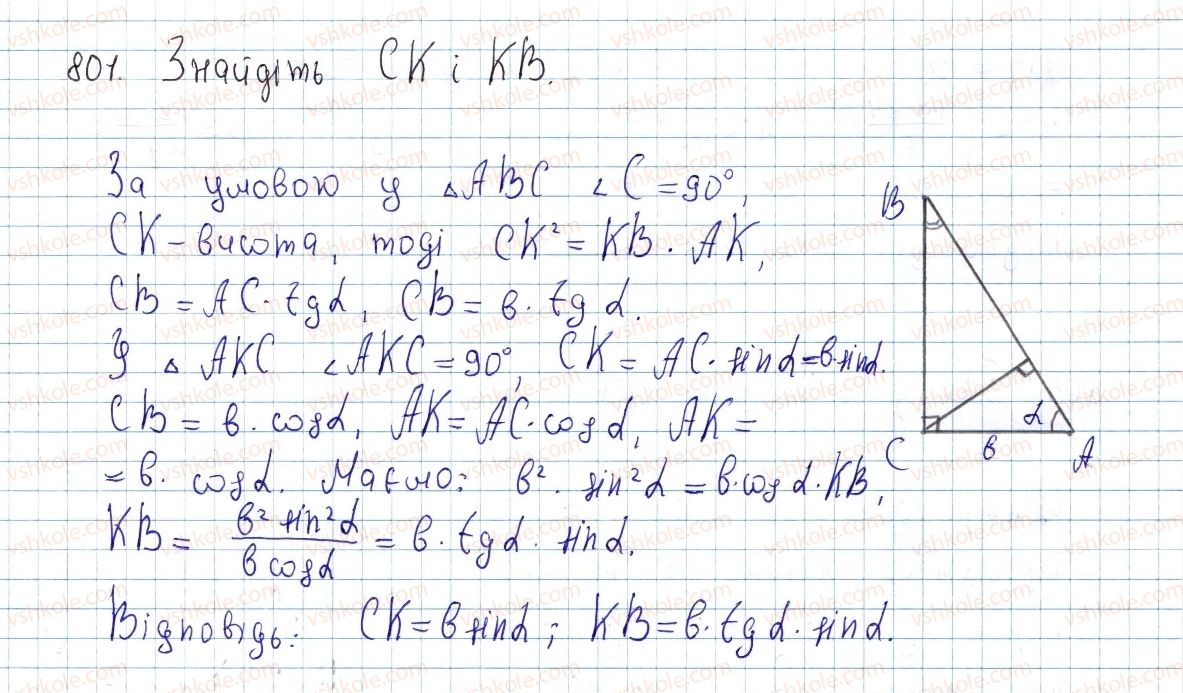 801. Знайдіть CK і KB.
За умовою у △ABC ∠C = 90°,
CK – висота, тоді CK² = KB · AK,
CB = AC · tgα, CB = в · tg α.
У △ AKC ∠AKC = 90°, CK = AC · sinα = в·sinα.
CB = в · cosα, AK = AC · cosα, AK =
= в · cosα. Маємо: в² · sin²α = в·cosα·KB,
KB = в² sin²α / в cosα = в · tgα · sinα.
Відповідь: CK = в sinα; KB = в · tg α · sinα.
B
C
в
α
A
vshkole.com